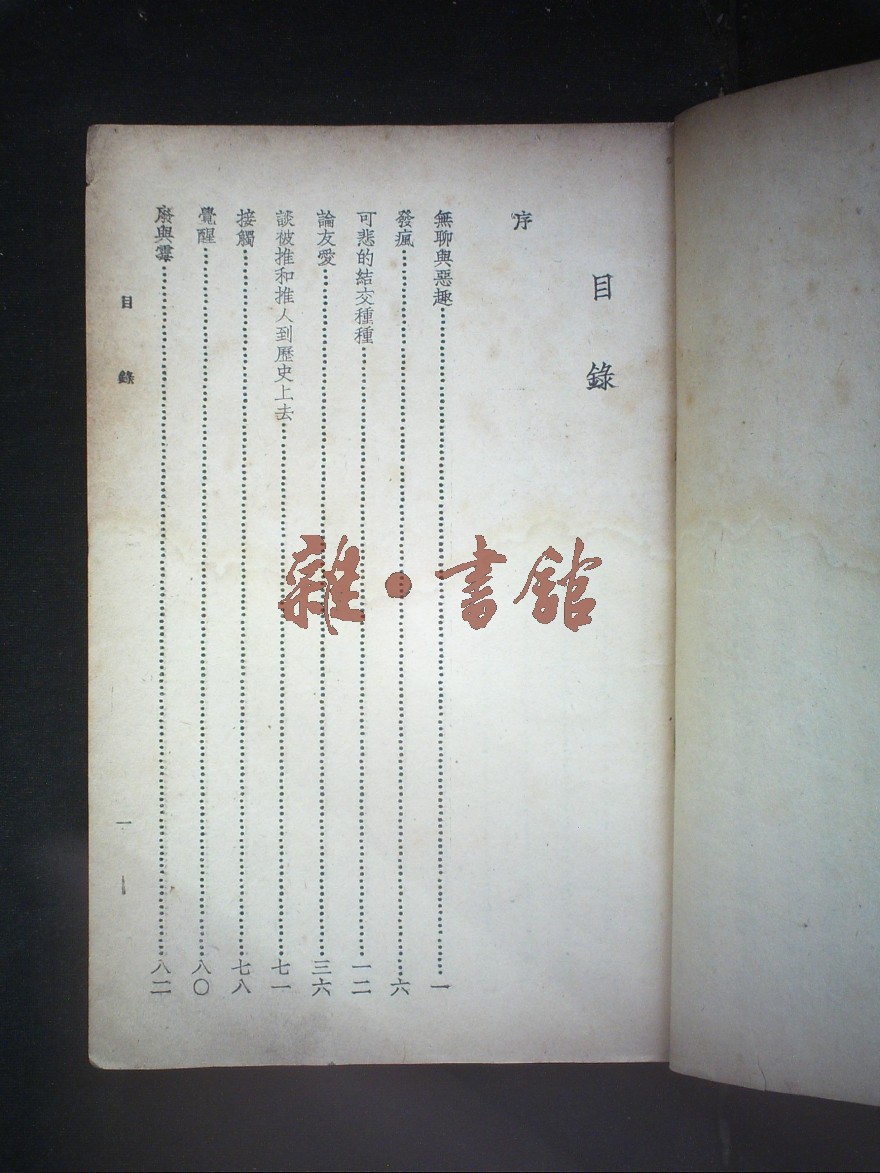 目錄
序
無聊與惡趣……一
發瘋……六
可悲的結交種種……一二
論友愛……三六
談被推和推人到歷史上去……七一
接觸……七八
覺醒……八〇
廢與霉……八二
目錄
一
雜・書館